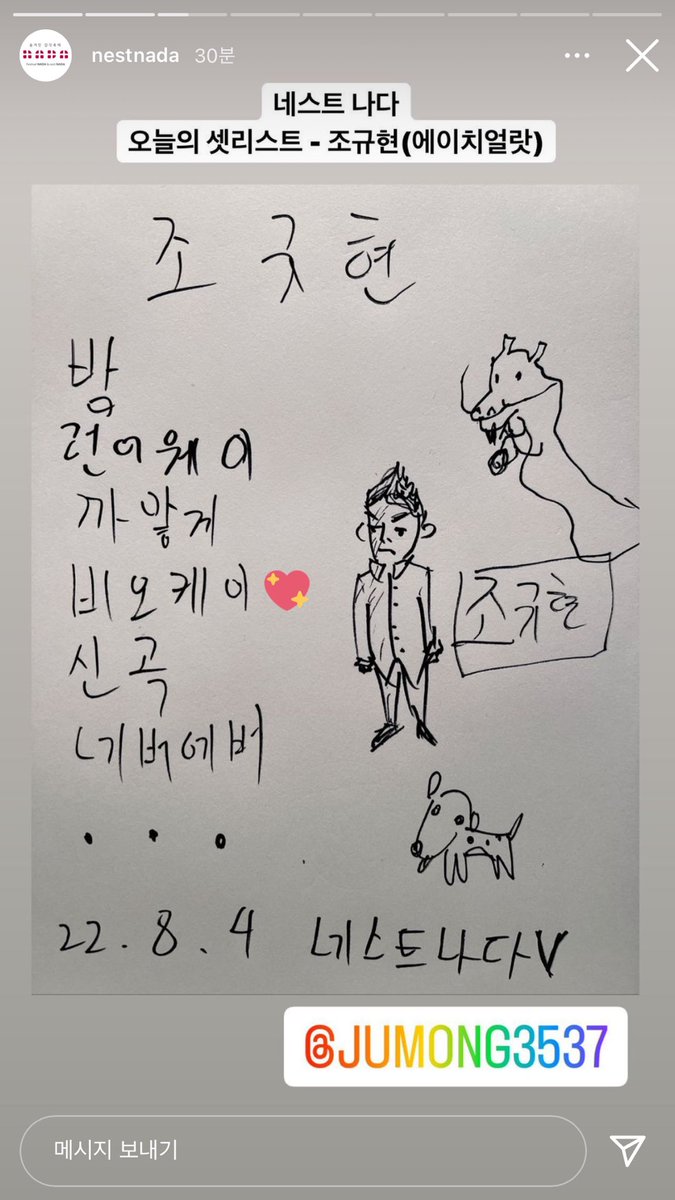 nestnada 30분
네스트 나다
오늘의 셋리스트 - 조규현(에이치얼랏)
조규현
방
런어웨이
까맣게
비오케이💖
신곡
네버에버
...
조규현
22.8.4 네스트나다V
@JUMONG3537
메시지 보내기